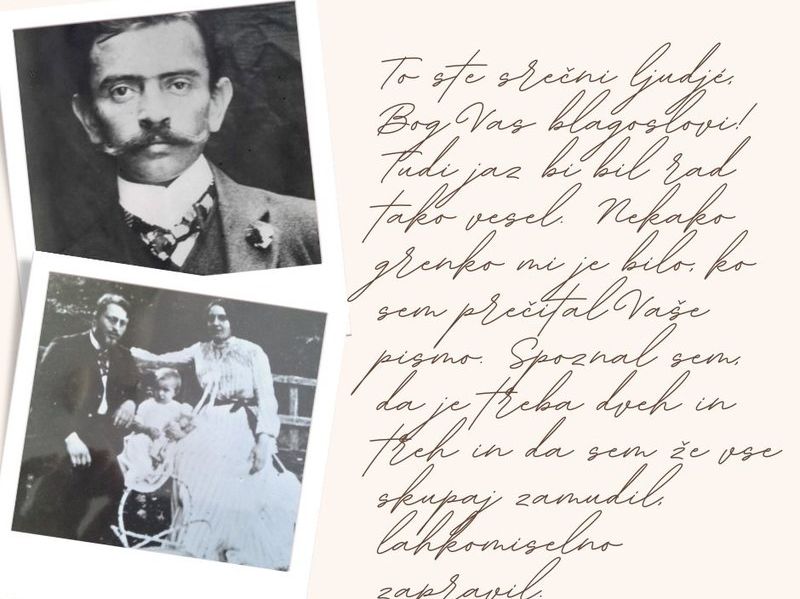 To ste srečni ljudjé,
Bog Vas blagoslovi!
Tudi jaz bi bil rad
tako vesel. Nekako
grenko mi je bilo, ko
sem prečital Vaše
pismo. Spoznal sem,
da je treba dveh in
treh in da sem že vse
skupaj zamudil,
lahkomiselno
zapravil.